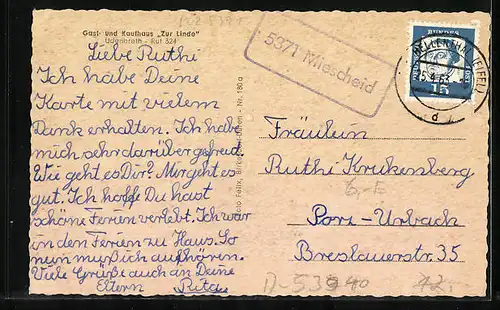 Gast- und Kaufhaus „Zur Linde"
Udenbreth - Ruf 324
Liebe Ruthi
Ich habe Deine
Karte mit vielem
Dank erhalten. Ich habe
mich sehr darüber gefreut.
Wie geht es Dir? Mir geht es
gut. Ich hoffe Du hast
schöne Ferien verlebt. Ich war
in den Ferien zu Haus. So
nun muß ich aufhören.
Viele Grüße auch an Deine
Eltern Rita
Nr. 180a
5371 Miescheid
BUNDES
15
Fräulein
Ruthi Krukenberg
Porz-Urbach
Breslauerstr. 35